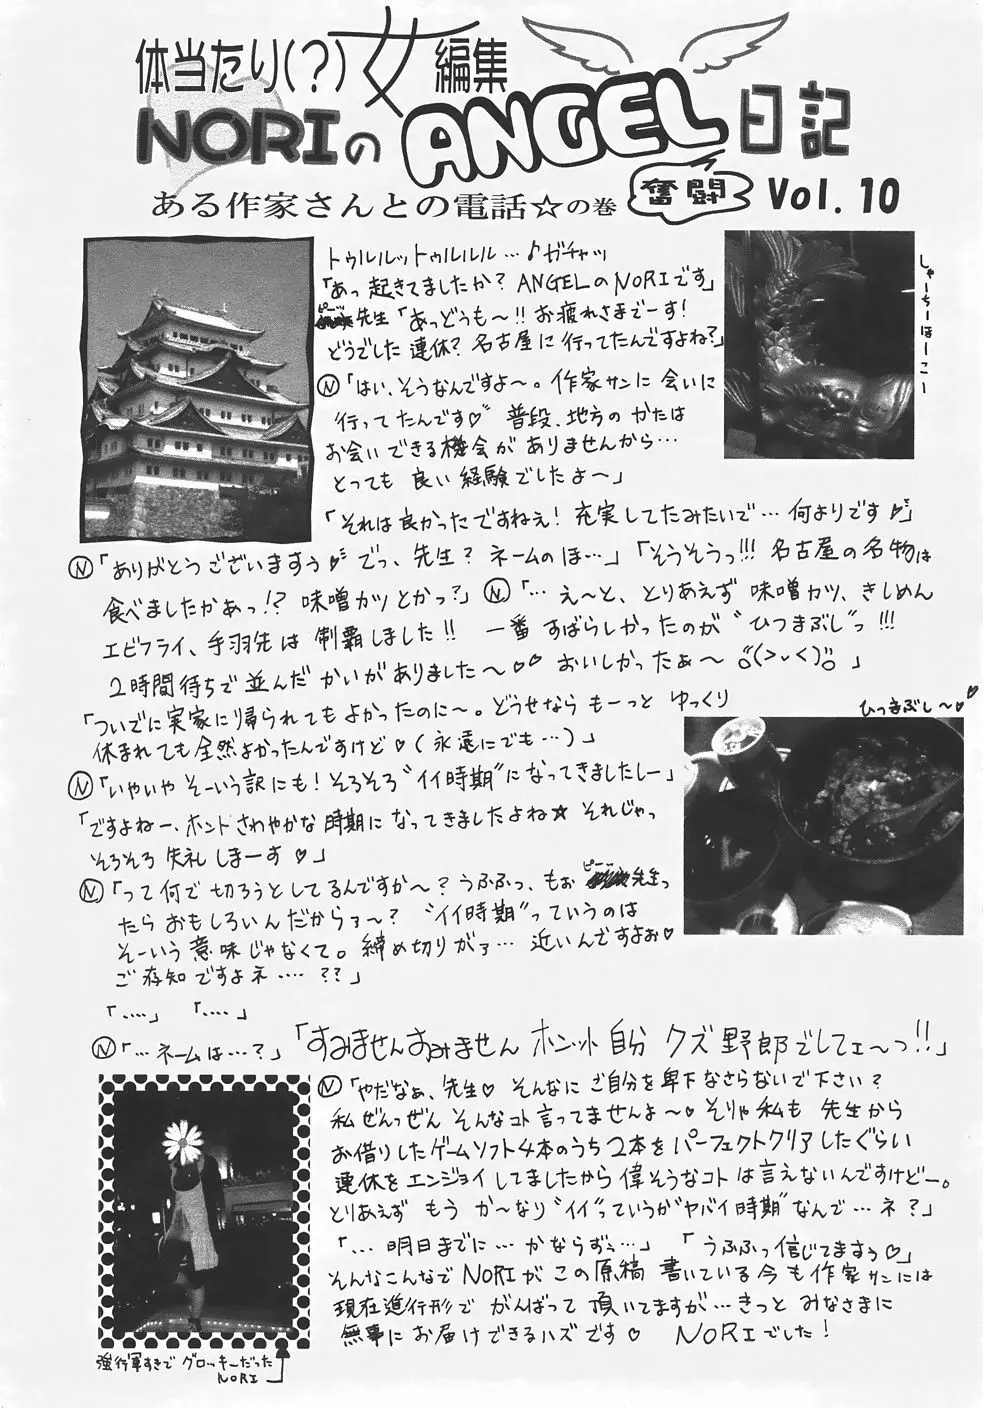 体当たり(?)女編集
NORIのANGEL日記
奮闘
Vol. 10
ある作家さんとの電話☆の巻
トゥルルットゥルルル…♪ガチャッ
「あっ起きてましたか? ANGELのNORIです」
ピーッ
先生「あっどうも〜!! お疲れさまでーす!
どうでした連休? 名古屋に行ってたんですよね?」
Ⓝ「はい、そうなんですよ〜。作家サンに会いに
行ってたんです♡゛普段、地方のかたは
お会いできる機会がありませんから…
とっても良い経験でしたよ〜」
しゃーちーほーこー
「それは良かったですねぇ! 充実してたみたいで…何よりです♡゛」
Ⓝ「ありがとうございますぅ♡゛でっ、先生? ネームのほ…」「そうそうっ!!! 名古屋の名物は
食べましたかあっ!? 味噌カツとかっ?」Ⓝ「…え〜と、とりあえず味噌カツ、きしめん
エビフライ、手羽先は制覇しました!! 一番すばらしかったのが“ひつまぶし”っ!!!
2時間待ちで並んだかいがありました〜♡♡ おいしかったぁ〜 (>ᴗ<) 」
「ついでに実家に帰られてもよかったのに〜。どうせならもーっとゆっくり
休まれても全然よかったんですけど♡(永遠にでも…)」
ひつまぶし〜♡♡
Ⓝ「いやいやそーいう訳にも! そろそろ“イイ時期”になってきましたしー」
「ですよねー、ホントさわやかな時期になってきましたよね☆ それじゃっ
そろそろ失礼しまーす♡」
Ⓝ「って何で切ろうとしてるんですか〜? うふふっ、もぉ
ピーッ
先生っ
たらおもしろいんだからァ〜? “イイ時期”っていうのは
そーいう意味じゃなくて。締め切りがァ…近いんですよぉ♡
ご存知ですよネ‥‥??」
「‥‥」 「‥‥」
Ⓝ「…ネームは…?」「すみませんすみませんホンット自分クズ野郎でしてェ〜っ!!」
Ⓝ「やだなぁ、先生♡ そんなにご自分を卑下なさらないで下さい?
私ぜんっぜんそんなコト言ってませんよ〜♡ そりゃ私も先生から
お借りしたゲームソフト4本のうち2本をパーフェクトクリアしたぐらい
連休をエンジョイしてましたから偉そうなコトは言えないんですけどー。
とりあえずもうか〜なり“イイ”っていうか“ヤバイ時期”なんで…ネ?」
「…明日までに…かならずぃ…」 「うふふっ信じてますぅ♡」
そんなこんなでNORIがこの原稿書いている今も作家サンには
現在進行形でがんばって頂いてますが…きっとみなさまに
無事にお届けできるハズです♡ NORIでした!
強行軍すぎでグロッキーだった
NORI